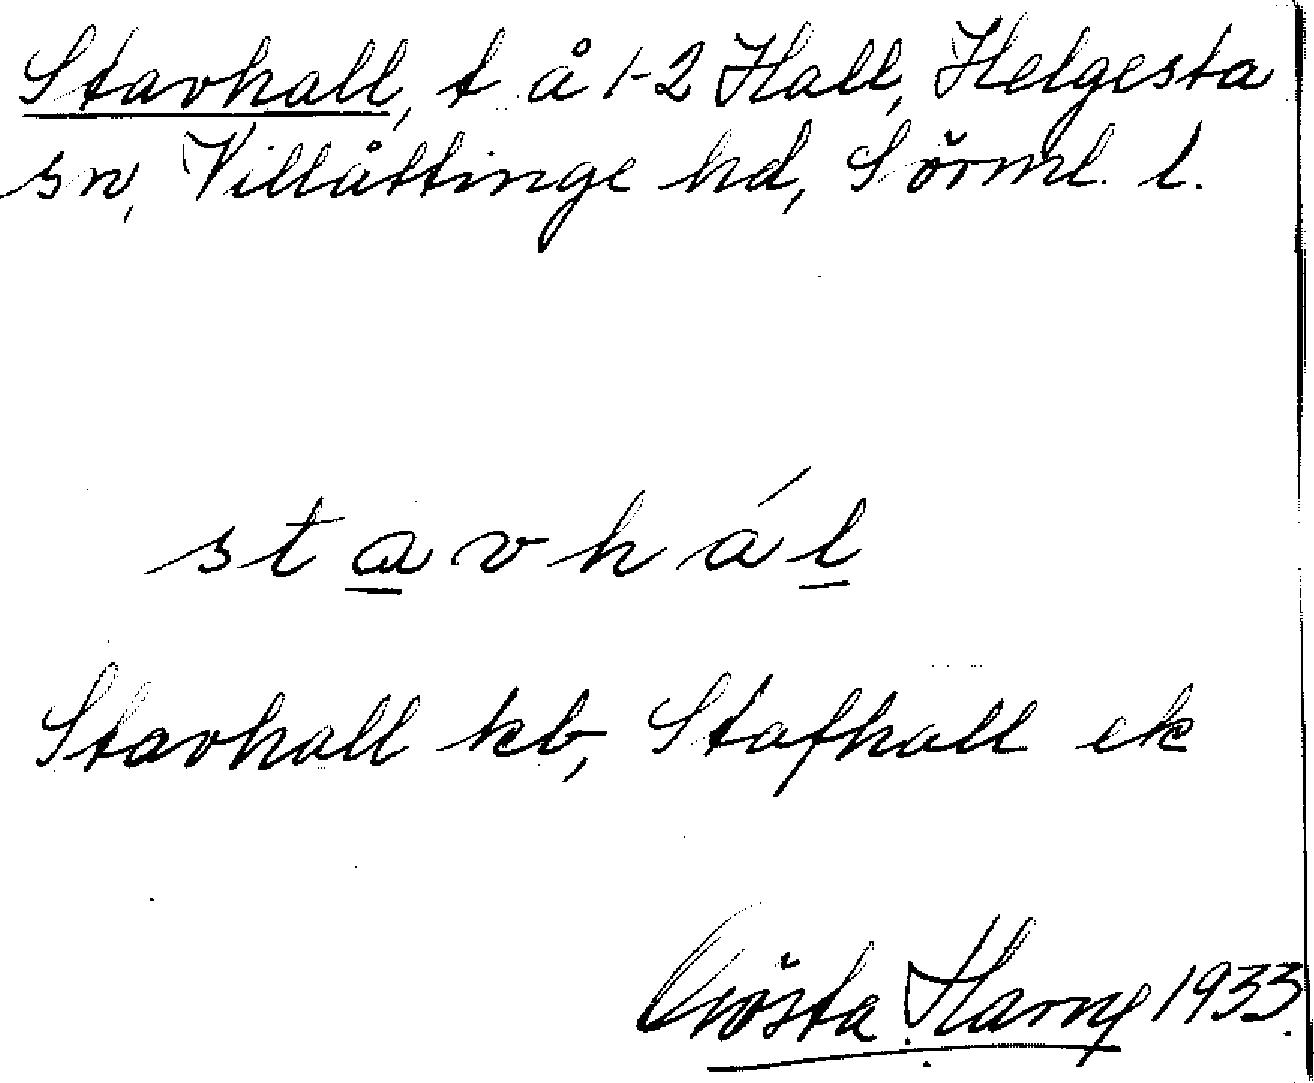 Stavhall, t å 1-2 Hall, Helgesta
sn, Villåttinge hd, Sörml. l.
stavhál
Stavhall kb, Stafhall ek
Gösta 1933.